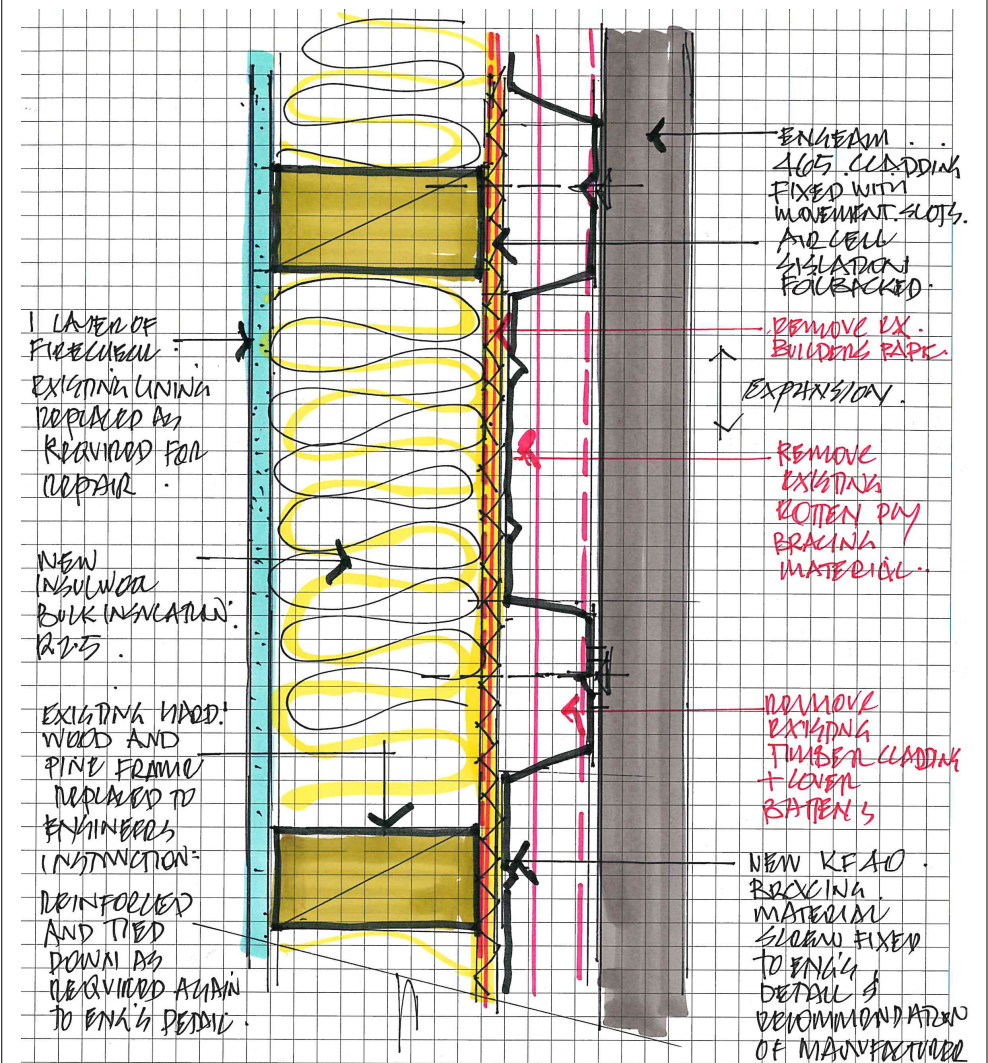 1 LAYER OF
FIRECHECK.
EXISTING LINING
REPLACED AS
REQUIRED FOR
REPAIR.
NEW
INSULWOOL
BULK INSULATION:
R2.5.
EXISTING HARD:
WOOD AND
PINE FRAME
REPLACED TO
ENGINEERS
INSTRUCTION:
REINFORCED
AND TIED
DOWN AS
REQUIRED AGAIN
TO ENG'S DETAIL.
ENSEAM
465 CLADDING
FIXED WITH
MOVEMENT SLOTS.
AIRCELL
SISLATION
FOILBACKED.
REMOVE EX.
BUILDERS PAPER.
EXPANSION.
REMOVE
EXISTING
ROTTEN PLY
BRACING
MATERIAL.
REMOVE
EXISTING
TIMBER CLADDING
+ COVER
BATTENS
NEW KF40.
BRACING
MATERIAL
SCREW FIXED
TO ENG'S
DETAIL &
RECOMMENDATION
OF MANUFACTURER